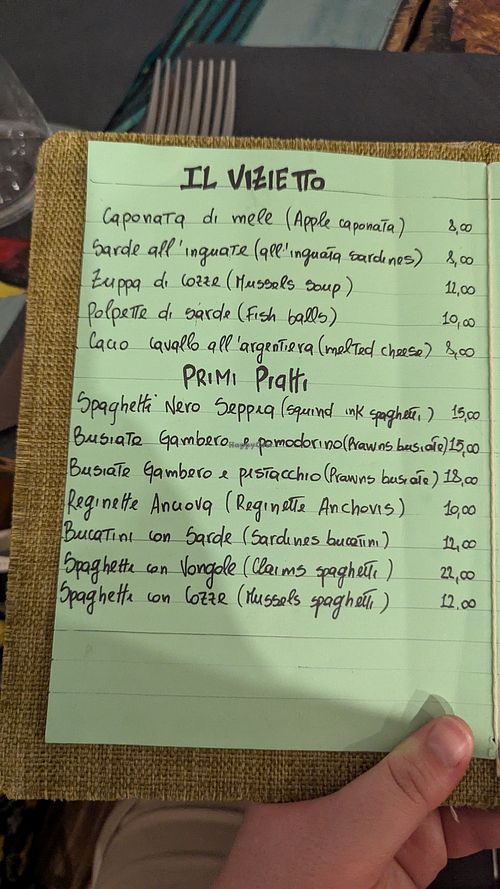 IL VIZIETTO
Caponata di mele (Apple caponata) 8,00
Sarde all'inguate (all'inguata sardines) 8,00
Zuppa di Cozze (Mussels soup) 12,00
Polpette di sarde (Fish balls) 10,00
Cacio cavallo all'argentiera (melted cheese) 8,00
PRIMI PIATTI
Spaghetti Nero Seppia (squind ink spaghetti) 15,00
Busiate Gambero e pomodorino (Prawns busiate) 15,00
Busiate Gambero e pistacchio (Prawns busiate) 18,00
Reginette Anciova (Reginette Anchovis) 10,00
Bucatini con Sarde (Sardines bucatini) 12,00
Spaghetti con Vongole (Claims spaghetti) 22,00
Spaghetti con Cozze (Mussels spaghetti) 12,00